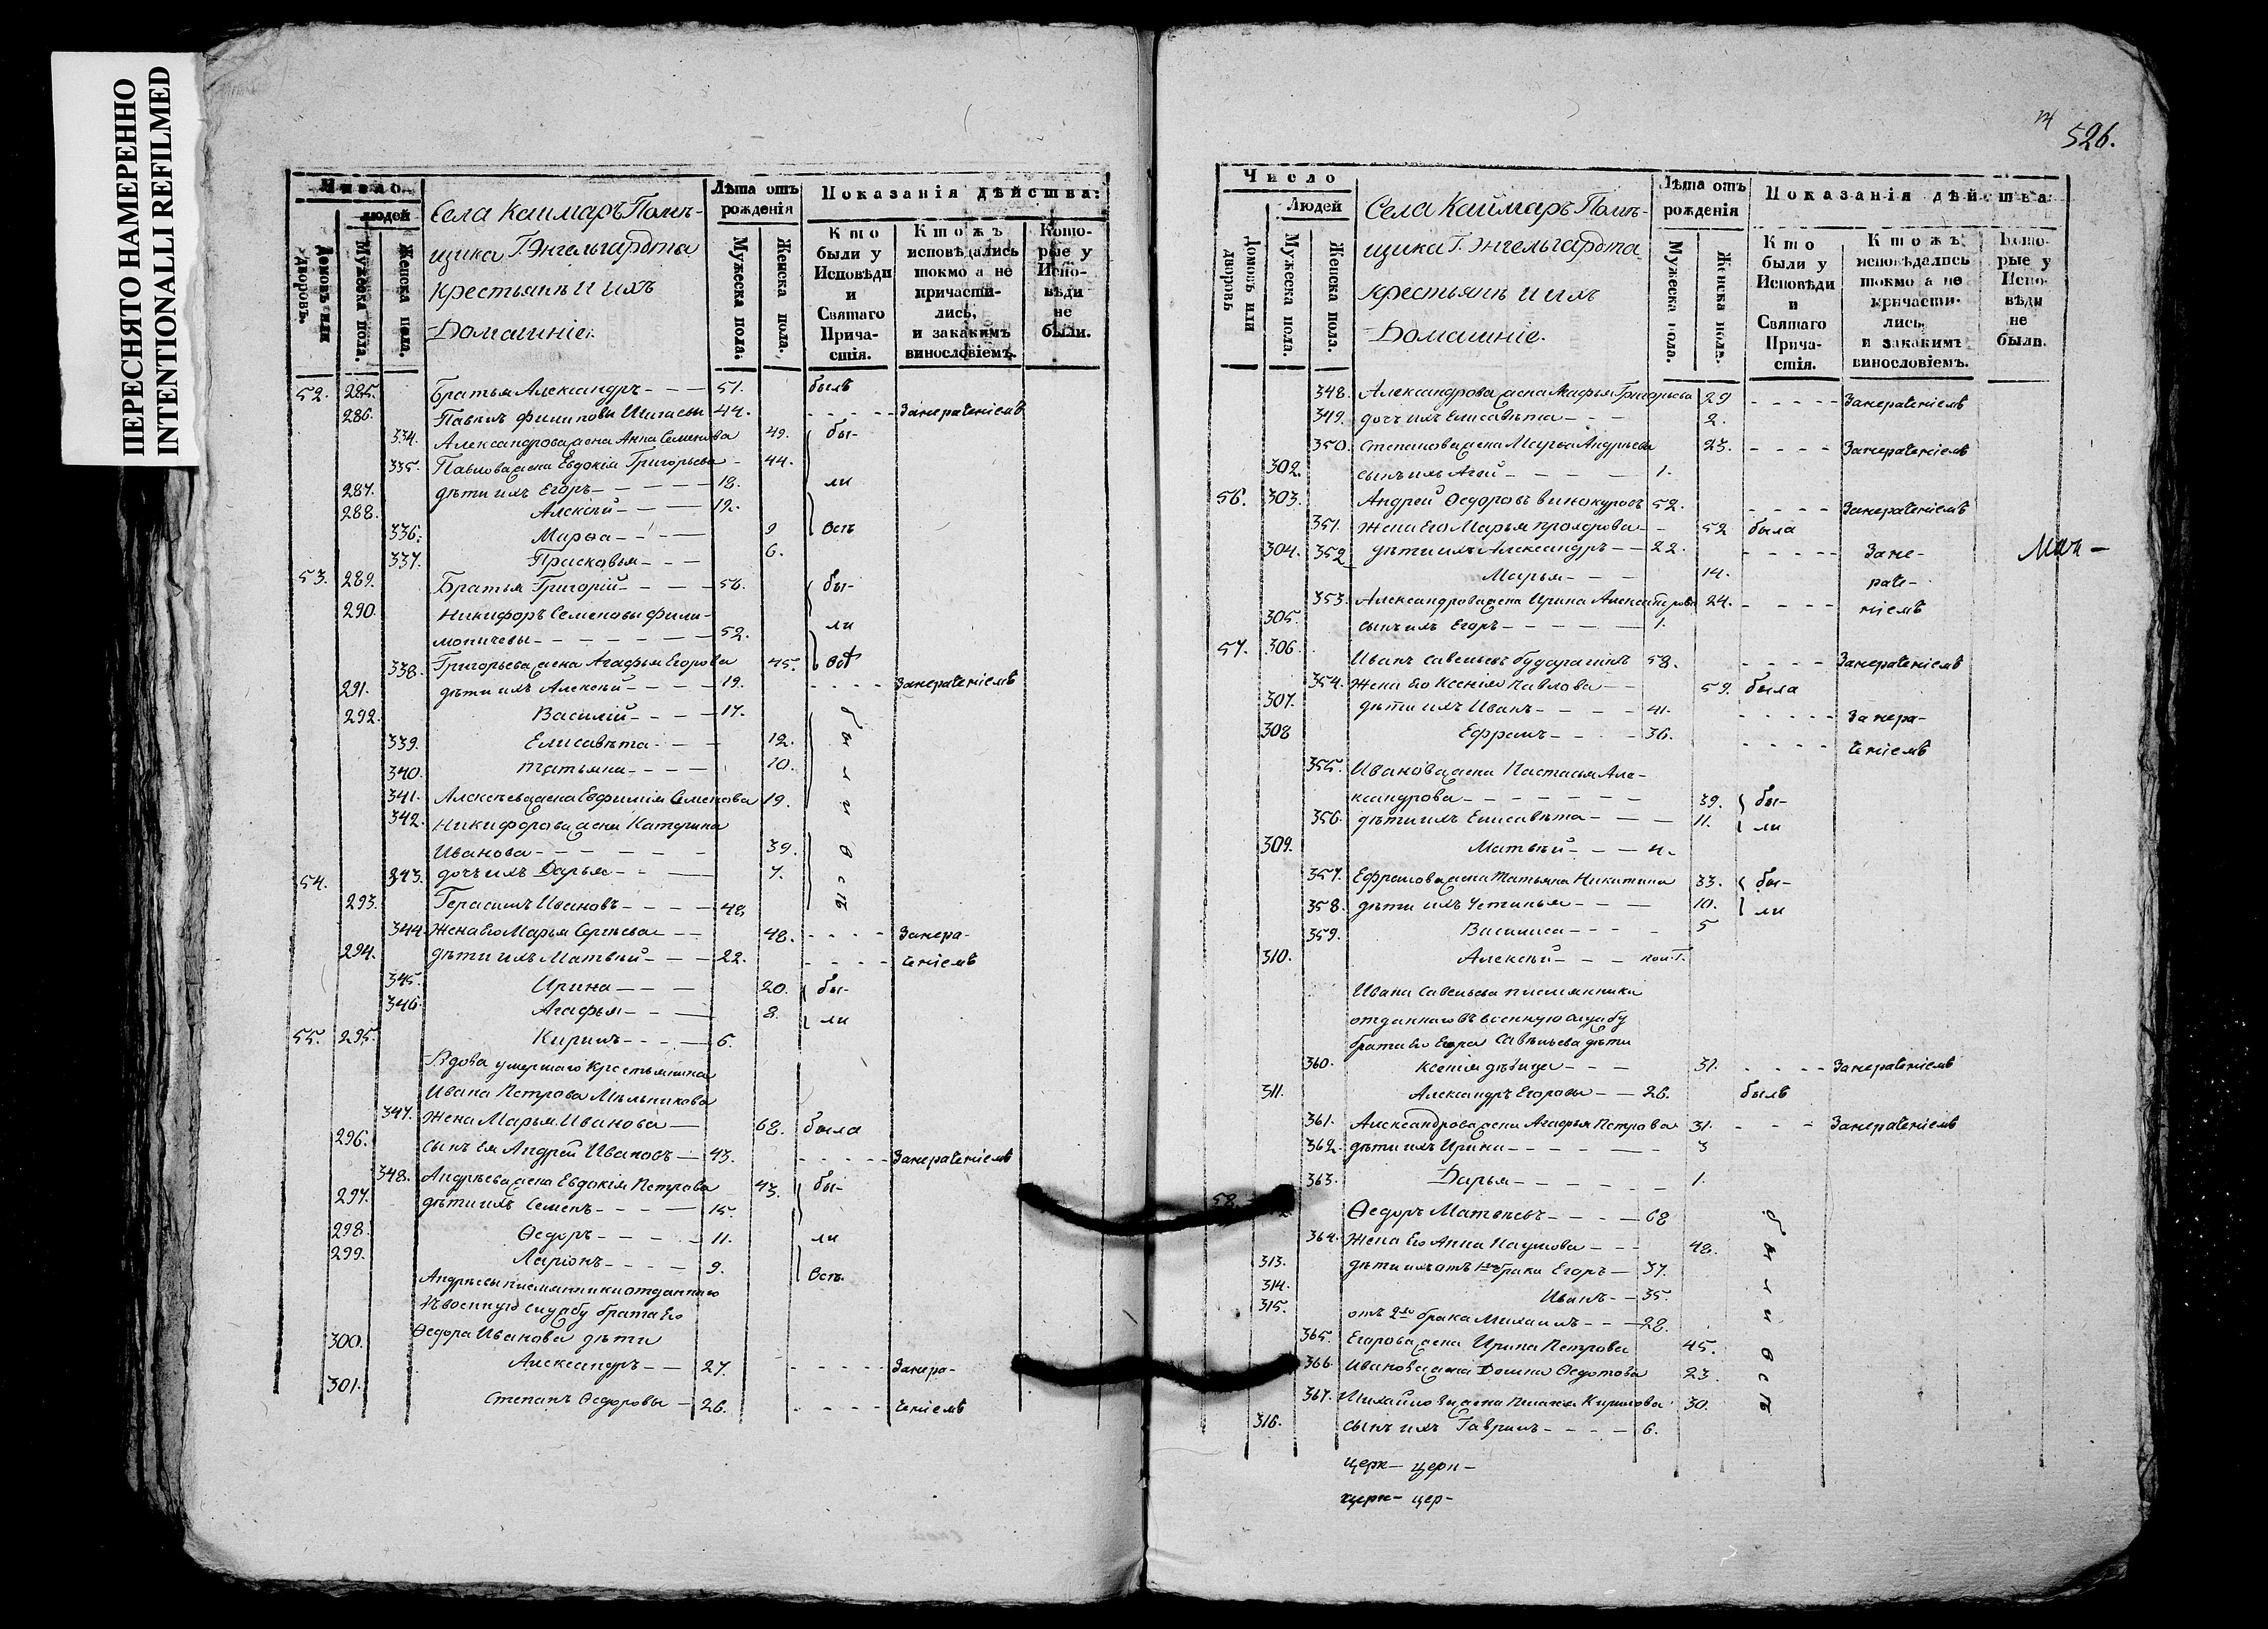 ПЕРЕСНЯТО НАМЕРЕННО
INTENTIONALLI REFILMED
Число
людей
Домовъ или дворовъ.
Мужеска пола.
Женска пола.
Села Каймаръ Помѣ-
щика Г. Энгельгардта
Крестьянѣ и ихъ
Домашніе.
Лѣта отъ рожденія
Мужеска пола.
Женска пола.
Показанія дѣйства:
Кто были у Исповѣди и Святаго Прича-стія.
Ктожъ исповѣдались токмо а не причасти-лись, и закакимъ винословіемъ.
Кото-рые у Испо-вѣди не были.
52. 285. Братья Александръ - - - 51. былъ
286. Павелъ Филиповы 44. - - - - Занерадѣніемъ
334. Александрова жена Анна Семенова 49. бы-
335. Павлова жена Евдокія Григорьева - 44.
287. дѣти ихъ Егоръ - - - - 18. ли
288. Алексѣй - - - 12.
336. Марѳа - - - 9 всѣ
337. Прасковья - - - 6.
53. 289. Братья Григорій - - - - 56. бы-
290. Никифоръ Семеновы Фили-
моничевы - - - - - - 52. ли
338. Григорьева жена Агафья Егорова 45. всѣ
291. дѣти ихъ Алексѣй - - - - 19. - - - - Занерадѣніемъ
292. Василій - - - - 17. б
339. Елисавета - - - 12. ы
340. Татьяна - - - - 10. л
341. Алексѣева жена Евфимія Семенова 19. и
342. Никифорова жена Катерина
Иванова - - - - - - 39. в
343. дочь ихъ Дарья - - - 7. с
54.
293. Герасимъ Ивановъ - - - - 48 ѣ
344. Жена Его Марья Сергѣева - - 48. - - - - Занера-
294. дѣти ихъ Матвѣй - - - 22. - - - - дѣніемъ
345. Ирина - - - 20. бы-
346. Агафья - - - 8. ли
55. 295. Кирилъ - - - - 6.
Вдова умершаго Крестьянина
Ивана Петрова Мельникова
347. Жена Марья Иванова - 68. была
296. сынъ ея Андрей Ивановъ - 43. - - - - Занерадѣніемъ
348. Андрѣева жена Евдокія Петрова 43. бы-
297. дѣти ихъ Семенъ - - - - 15.
298. Ѳедоръ - - - - 11. ли
299. Ларіонъ - - - - 9. всѣ.
Андрѣевы племянники отданнаго
въ военную службу брата Его
Ѳедора Иванова дѣти
300. Александръ - - 27. - - - - Занера-
301. Степанъ Ѳедоровы - 26. - - - - дѣніемъ
526.
Число
Людей
Домовъ или дворовъ
Мужеска пола.
Женска пола.
Села Каймаръ Помѣ-
щика Г. Энгельгардта
Крестьянѣ и ихъ
Домашніе.
Лѣта отъ рожденія
Мужеска пола.
Женска пола.
Показанія дѣйства
Кто были у Исповѣди и Святаго Прича-стія.
Ктожъ исповѣдались токмо а не причасти-лись, и закакимъ винословіемъ.
Кото-рые у Испо-вѣди не были.
348. Александрова жена Агафья Григорьева 29 - - - - Занерадѣніемъ
349. дочь ихъ Елисавѣта - - - 2.
350. Степанова жена Марѳа Андрѣева 23. - - - - Занерадѣніемъ
302. сынъ ихъ - - - - 1.
56. 303. Андрей Ѳедоровъ Винокуровъ 52. - - - - Занерадѣніемъ
351. Жена Его Марья - - 52 была
304. 352 дѣти ихъ Александръ - - 22. - - - - - Зане-
Марья - - - 14. радѣ-
353. Александрова жена Ирина 24. - - - - ніемъ
305. сынъ ихъ Егоръ - - - - - 1.
57. 306. Иванъ Савельевъ 58. - - - - Занерадѣніемъ
354. Жена Его Ксенія Павлова - - 59. была
307. дѣти ихъ Иванъ - - - - 41. - - - - - Занера-
308 Ефремъ - - - - 36. - - - - дѣніемъ
355. Иванова жена Настасья Але-
ксандрова - - - - - - - 39. бы-
356. дѣти ихъ Елисавѣта - - - 11. ли
309. Матвѣй - - - 4.
357. Ефремова жена Татьяна Никитина 33. бы-
358. дѣти ихъ Устинья - - - 10. ли
359. Василиса - - - - 5
310. Алексѣй - - - пол. г.
Ивана Савельева племянники
отданнаго въ военную службу
брата Его Егора Савѣльева дѣти
360. Ксенія дѣвица - - - 31. - - - - Занерадѣніемъ
311. Александръ Егоровы - - 26. былъ
361. Александрова жена Агафья Петрова 31. - - - Занерадѣніемъ
362. дѣти ихъ Ирина - - - - - 3
363. Дарья - - - - - - 1.
58. Ѳедоръ Матвѣевъ - - - - 68 б
364. Жена Его Анна Наумова - - - 48. ы
313. дѣти ихъ отъ 1го брака Егоръ - 37.
314. Иванъ - - 35. л
315. отъ 2го брака Михаилъ - - - 28. и
365. Егорова жена Ирина Петрова 45.
366. Иванова жена Домна Ѳедотова 23. в
367. Михайлова жена Кирилова 30. с ѣ
316. сынъ ихъ Гаврилъ - - - - 6.
церк- церк-
церк- цер-